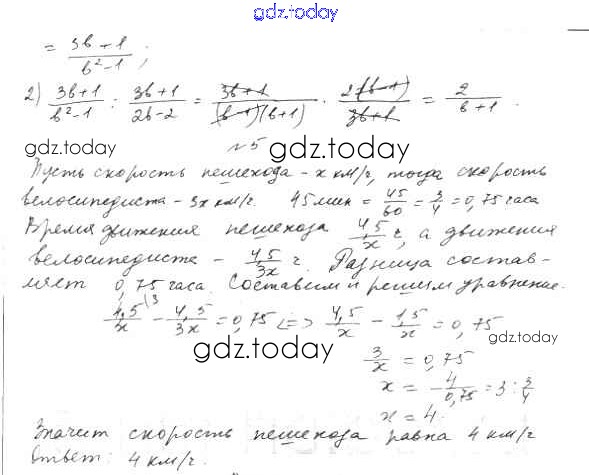 gdz.today
= 3b+1 / b²-1 ;
2) 3b+1 / b²-1 : 3b+1 / 2b-2 = 3b+1 / (b-1)(b+1) · 2(b-1) / 3b+1 = 2 / b+1 .
gdz.today
№5
gdz.today
Пусть скорость пешехода - x км/ч, тогда скорость
велосипедиста - 3x км/ч. 45 мин = 45/60 = 3/4 = 0,75 часа
Время движения пешехода 4,5/x ч, а движения
велосипедиста - 4,5/3x ч. Разница состав-
ляет 0,75 часа. Составим и решим уравнение.
4,5/x \3 - 4,5/3x = 0,75 <=> 4,5/x - 1,5/x = 0,75
gdz.today
gdz.today
3/x = 0,75
x = 4/0,75 = 3 : 3/4
x = 4.
Значит скорость пешехода равна 4 км/ч
Ответ: 4 км/ч.
gdz.today